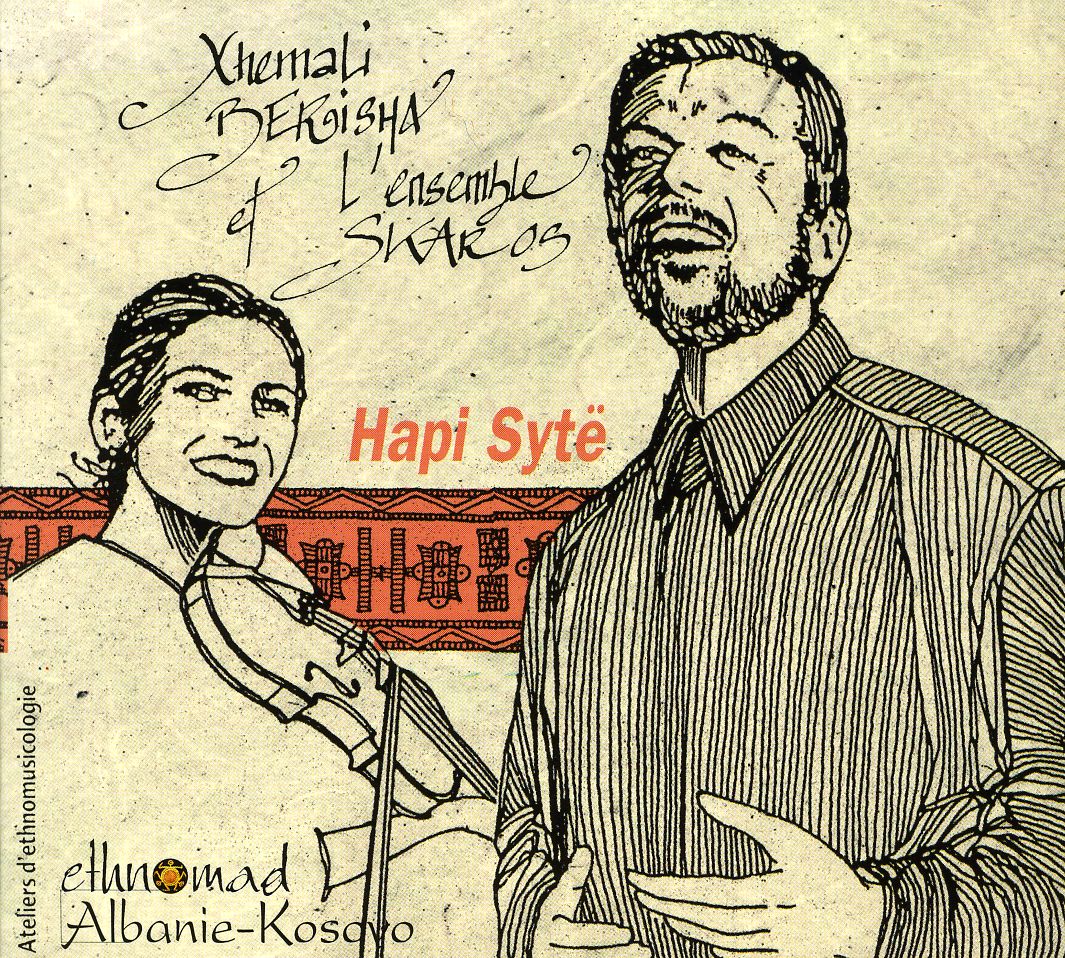 Xhemali
BERISHA
et L'ensemble
SKAROS
Hapi Sytë
Ateliers d'ethnomusicologie
ethnomad
Albanie-Kosovo